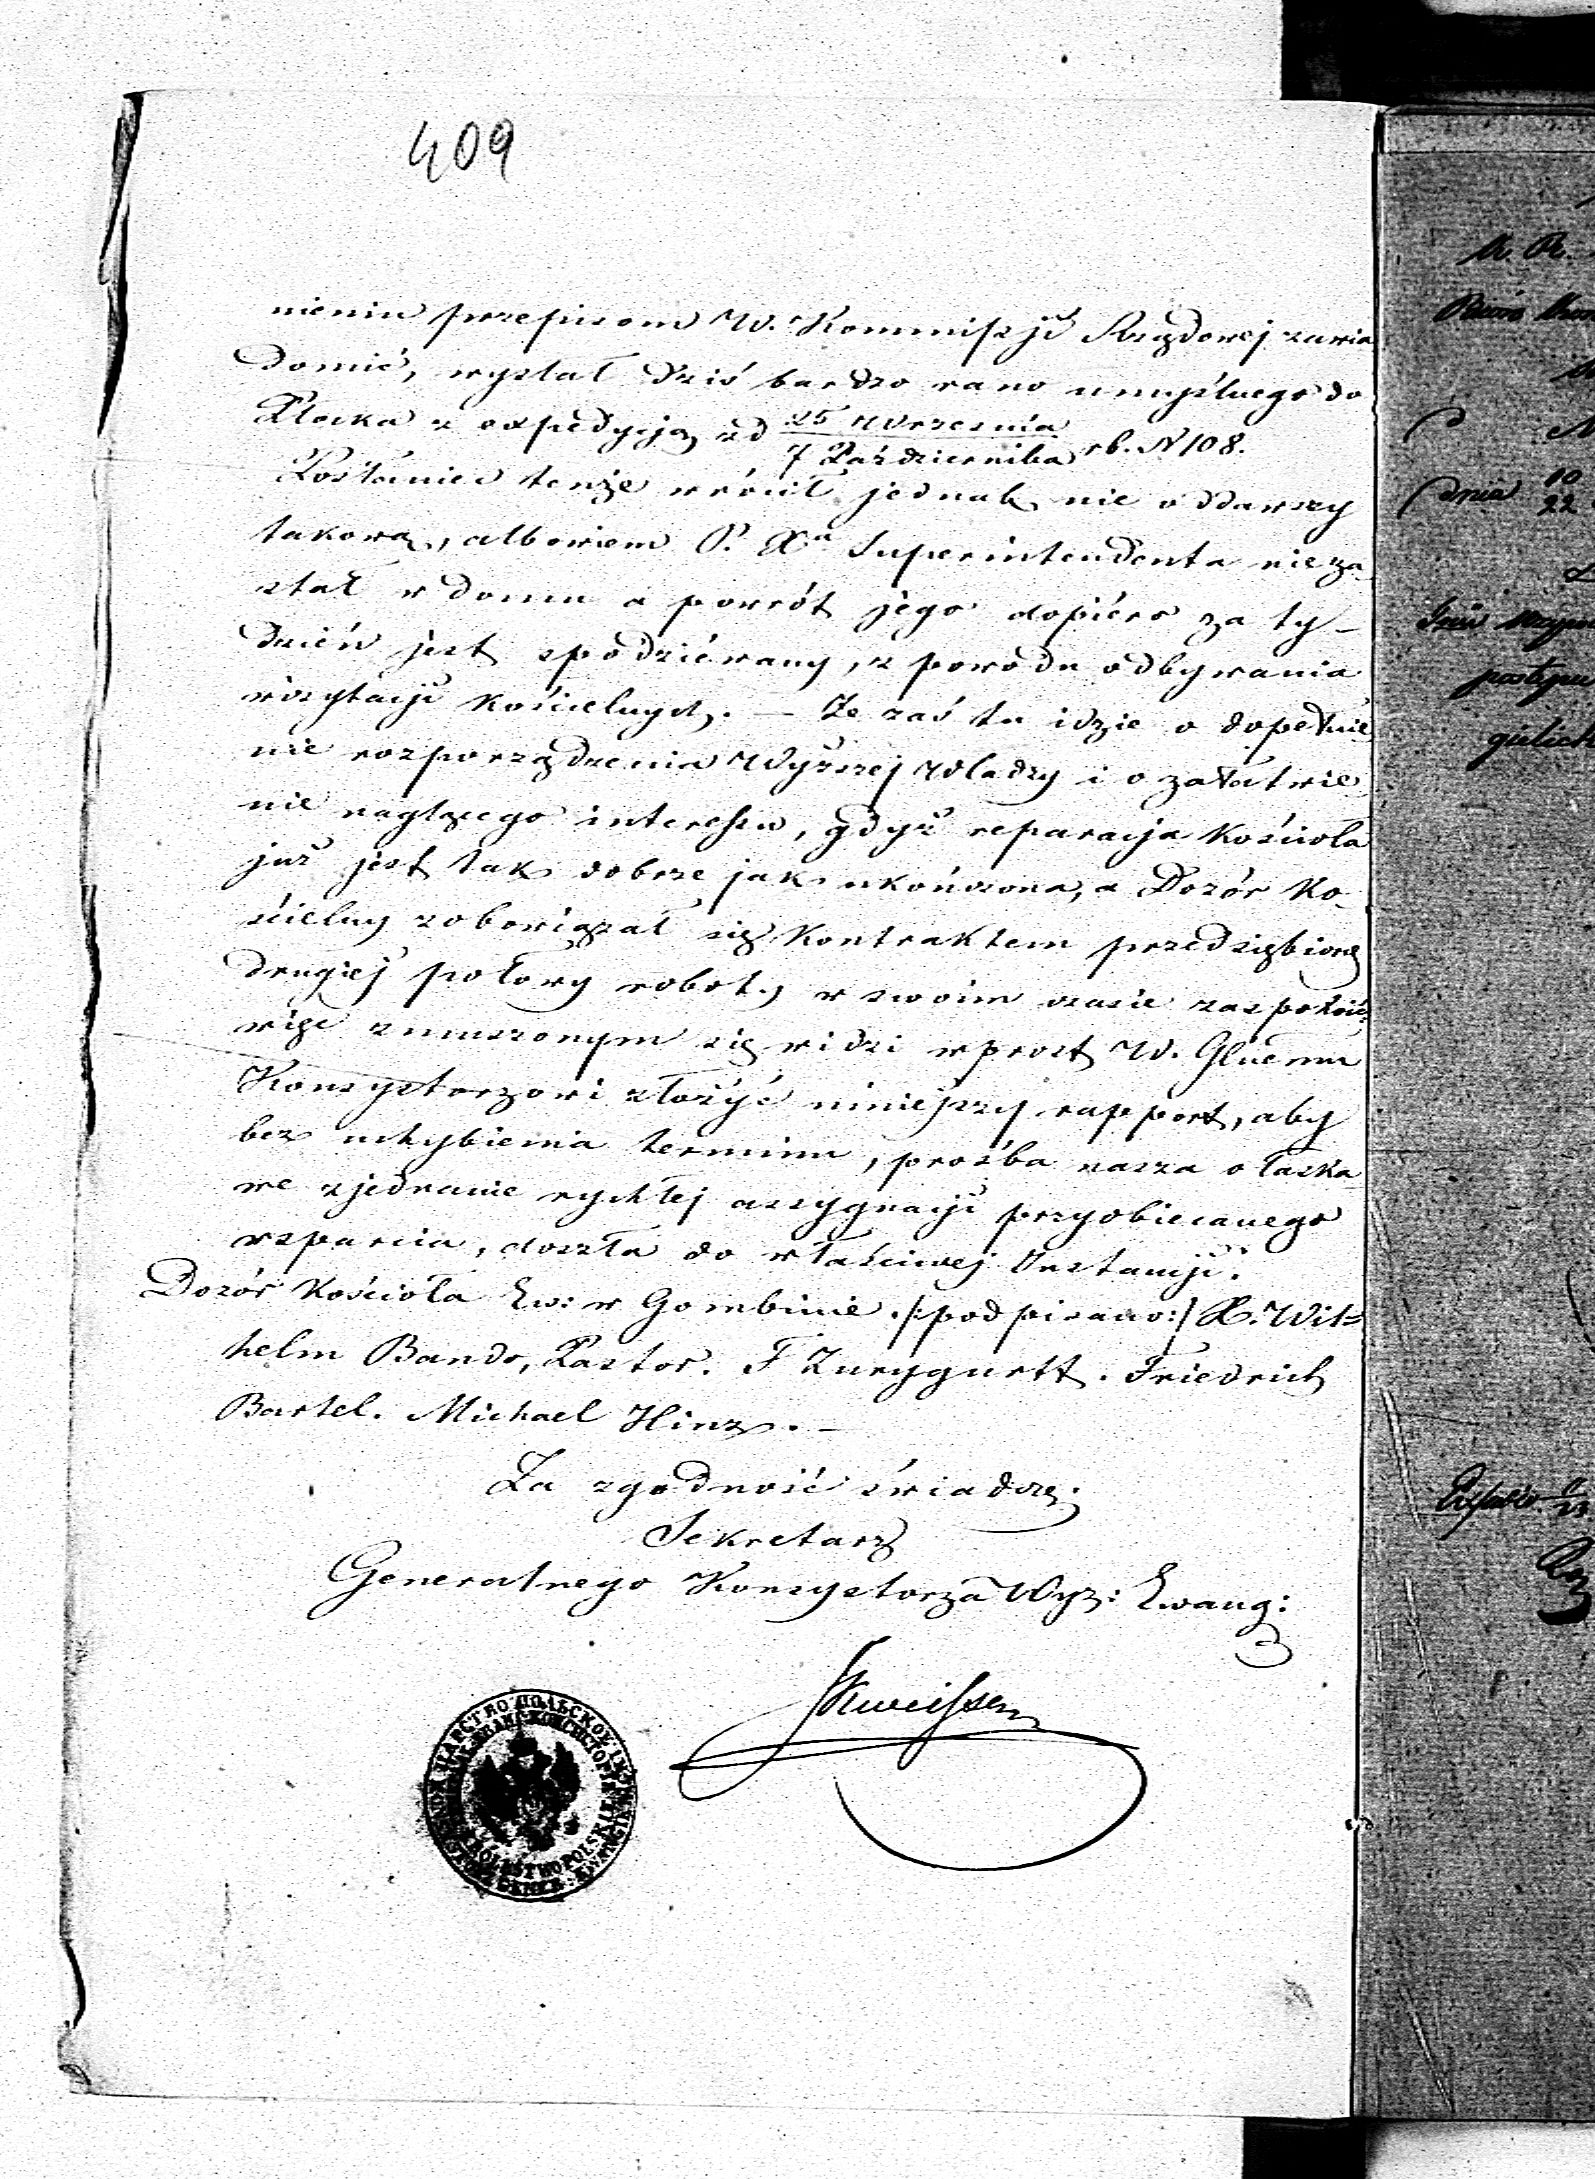 409
nieniu przepisom W. Kommissji Rządowej zawia
domić, wysłał dziś bardzo rano umyślnego do
Płocka z expedycją zd 25 Września
7 Października rb. N 108.
Posłaniec tenże wrócił jednak nie oddawszy
takową, albowiem P. Xa Superintendenta nieza
stał w domu a powrót jego dopiéro za ty-
dzień jest spodziéwany, z powodu odbywania
wizytacji kościelnych. — Że zaś tu idzie o dopełnie
nie rozporządzenia Wyższej Władzy i o załatwie
nie naglącego interessu, gdyż reparacja Kościoła
już jest tak dobrze jak ukończona, a Dozór Ko-
ścielny zobowiązał się kontraktem przedsiębiorcę
drugiej połowy roboty w swoim czasie zaspokoić,
więc zmuszonym się widzi wprost W. Głuemu
Konsystorzowi złożyć niniejszy rapport, aby
bez uchybienia terminu, prośba nasza o łaska
we zjednanie rychłej assygnacji przyobiecanego
wsparcia, doszła do właściwej Instancji.
Dozór Kościoła Ew: w Gombinie. /:podpisano:/ X. Wil=
helm Bando, Pastor. F Zurygurtt. Friedrich
Bartel. Michael Hinz. —
Za zgodność świadczę.
Sekretarz
Generalnego Konsystorza Wyz: Ewang:
ЦАРСТВО ПОЛЬСКОЕ
KRÓLESTWO POLSKIE
dnia 10
22